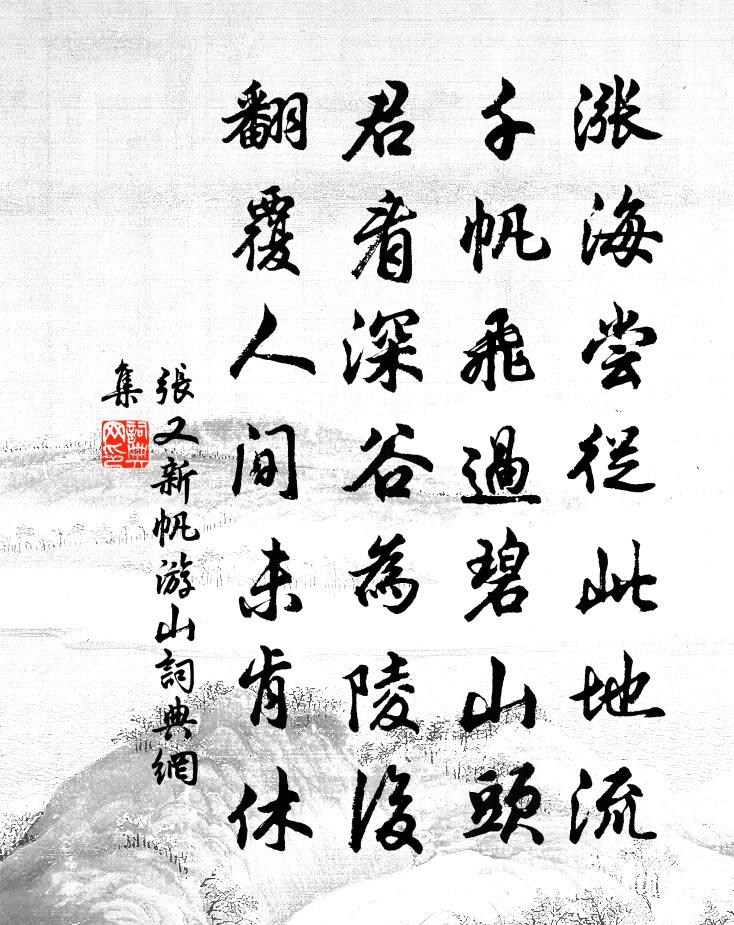 漲海嘗從此地流
千帆飛過碧山頭
君看深谷為陵後
翻覆人間未肯休
張又新帆游山詞典網
集
詞典網印